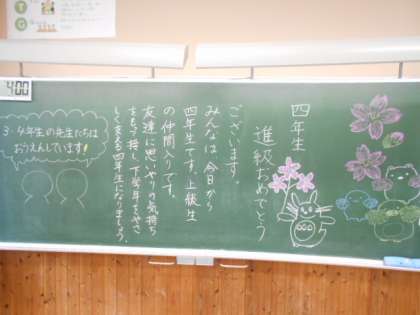 四年生
進級おめでとう
ございます。
みんなは、今日から
四年生です。上級生
の仲間入りです。
友達に思いやりの気持ち
をもって接し、下学年をやさ
しく支える四年生になりましょう。
3・4年生の先生たちは
おうえんしています!
400
TG